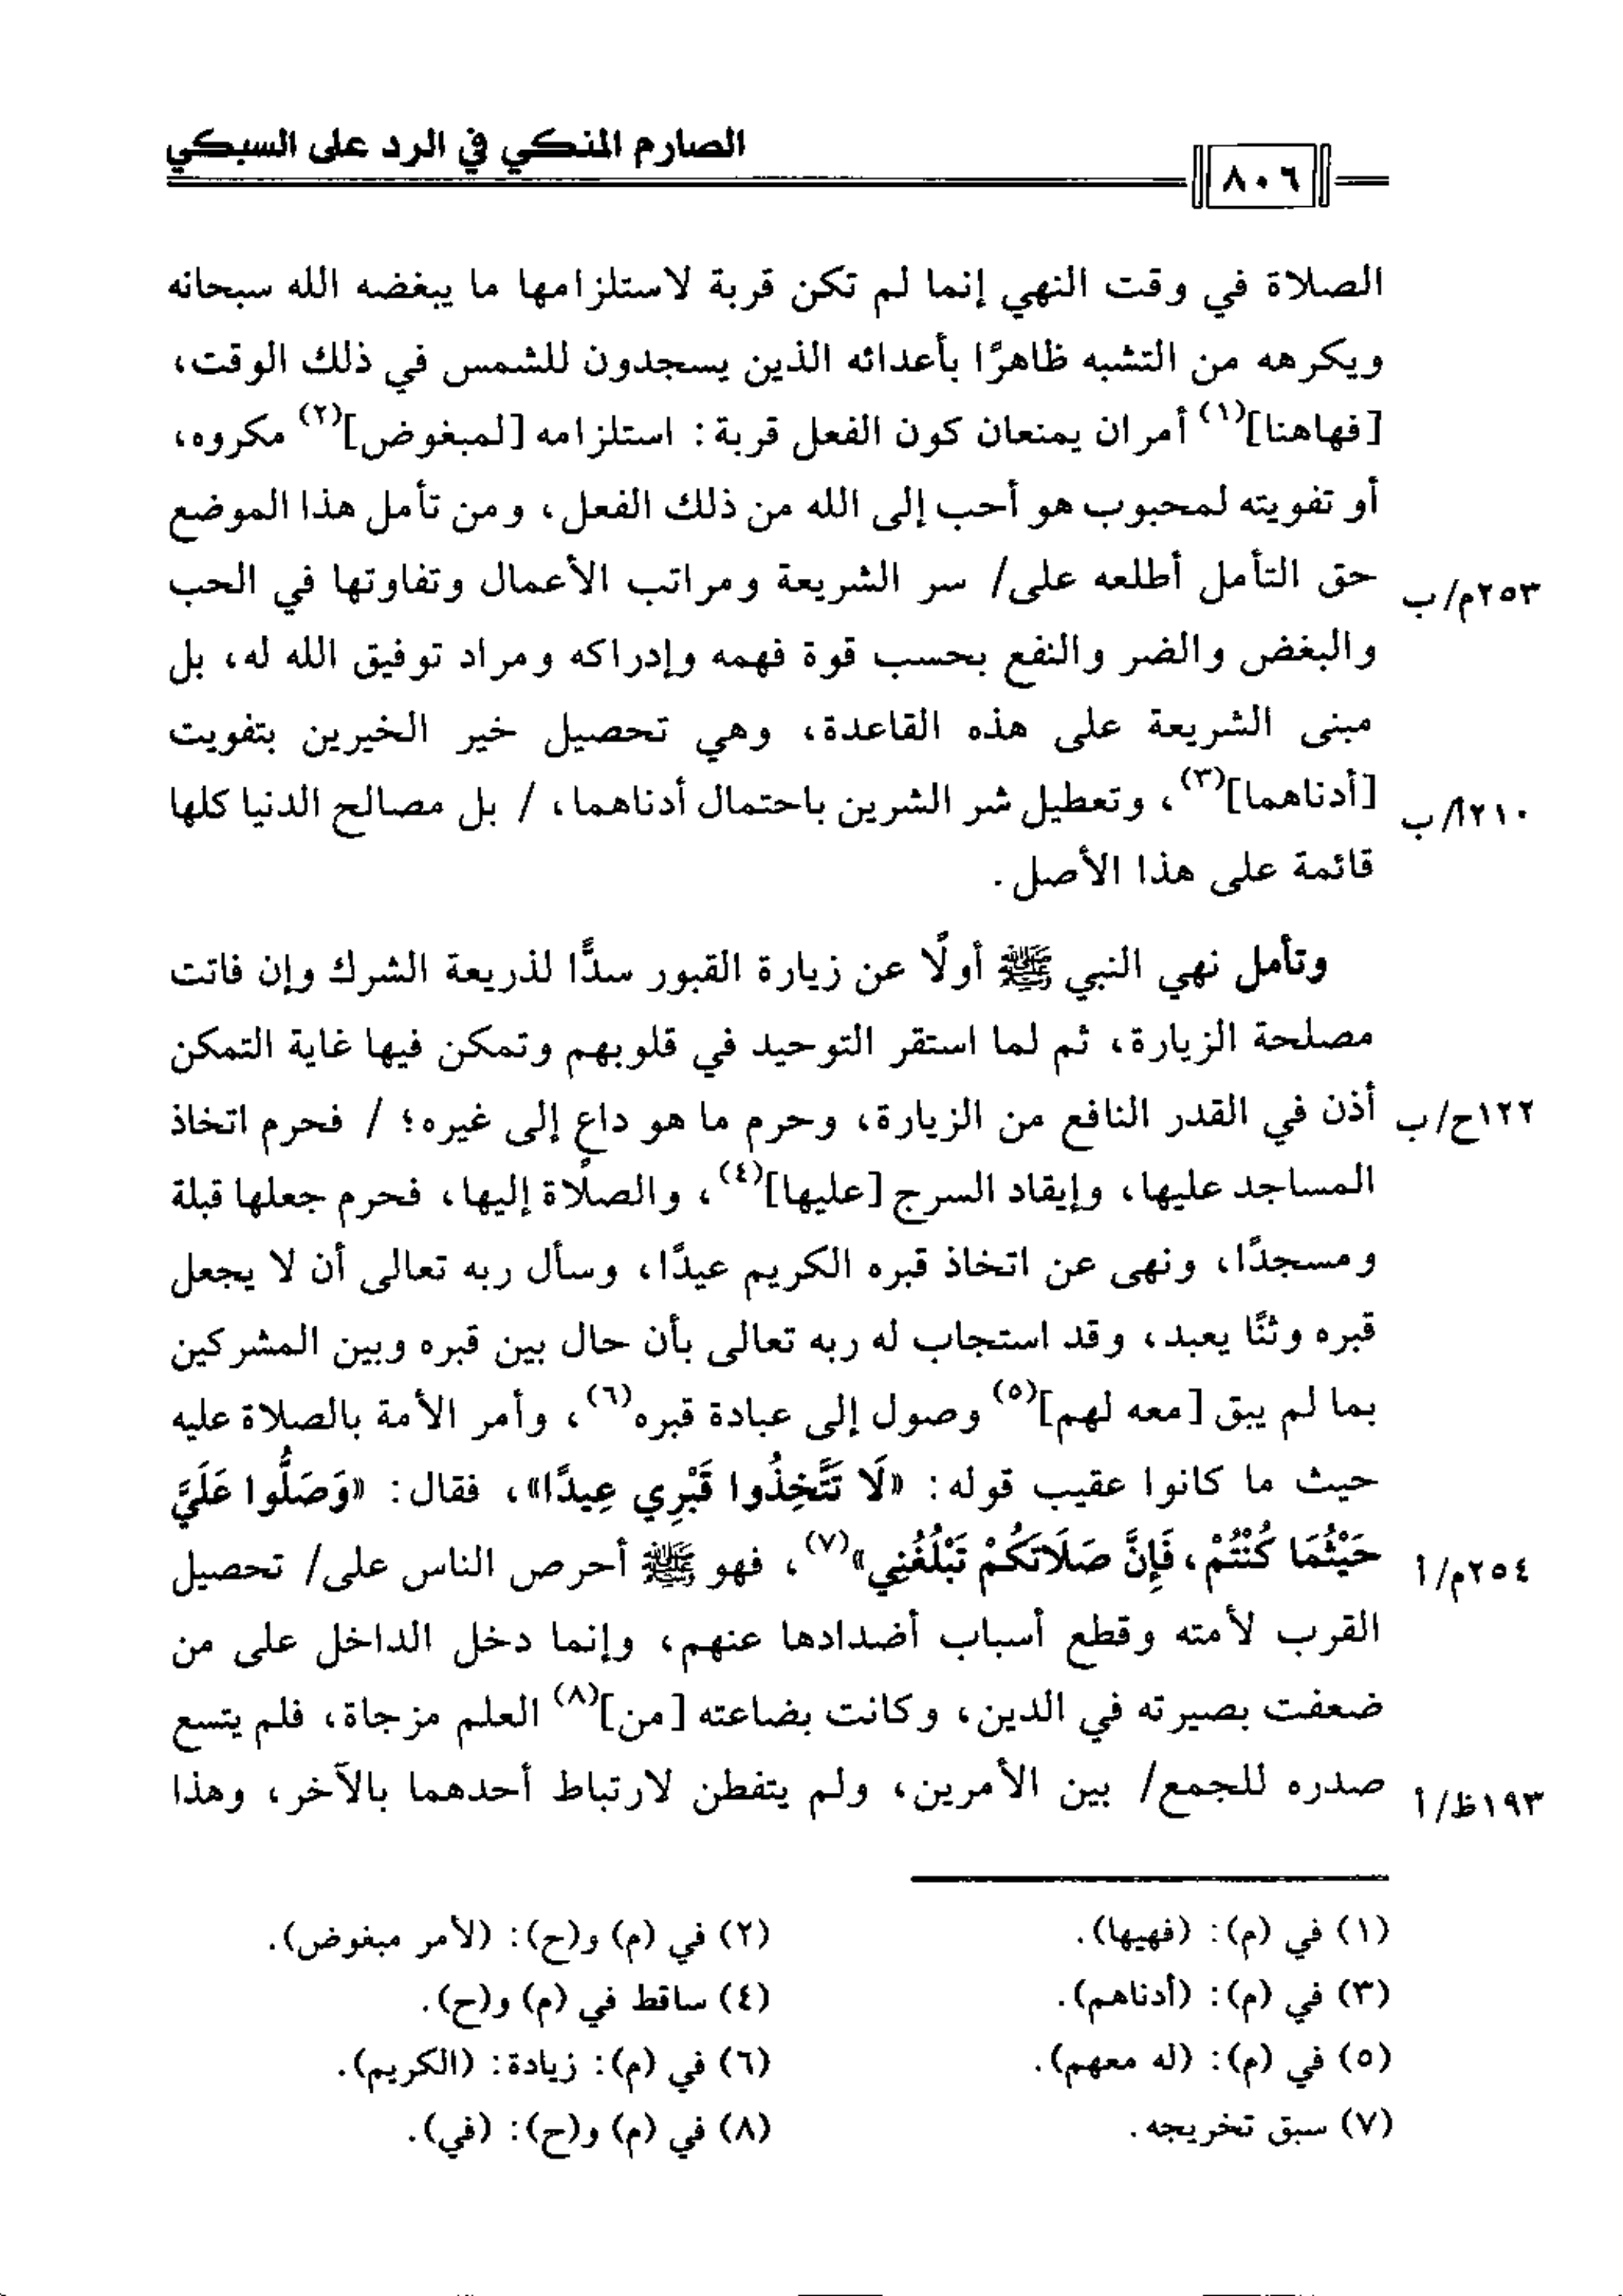 الصارم المنكي في الرد على السبكي
٨٠٦
الصلاة في وقت النهي إنما لم تكن قربة لاستلزامها ما يبغضه الله سبحانه
ويكرهه من التشبه ظاهرًا بأعدائه الذين يسجدون للشمس في ذلك الوقت،
[فهاهنا](١) أمران يمنعان كون الفعل قربة: استلزامه [لمبغوض](٢) مكروه،
أو تفويته لمحبوب هو أحب إلى الله من ذلك الفعل، ومن تأمل هذا الموضع
حق التأمل أطلعه على/ سر الشريعة ومراتب الأعمال وتفاوتها في الحب ٢٥٣م/ب
والبغض والضر والنفع بحسب قوة فهمه وإدراكه ومراد توفيق الله له، بل
مبنى الشريعة على هذه القاعدة، وهي تحصيل خير الخيرين بتفويت
[أدناهما](٣)، وتعطيل شر الشرين باحتمال أدناهما، / بل مصالح الدنيا كلها ٢١٠أ/ب
قائمة على هذا الأصل.
وتأمل نهي النبي ﷺ أولًا عن زيارة القبور سدًّا لذريعة الشرك وإن فاتت
مصلحة الزيارة، ثم لما استقر التوحيد في قلوبهم وتمكن فيها غاية التمكن
أذن في القدر النافع من الزيارة، وحرم ما هو داع إلى غيره؛ / فحرم اتخاذ ١٢٢ح/ب
المساجد عليها، وإيقاد السرج [عليها](٤)، والصلاة إليها، فحرم جعلها قبلة
ومسجدًا، ونهى عن اتخاذ قبره الكريم عيدًا، وسأل ربه تعالى أن لا يجعل
قبره وثنًا يعبد، وقد استجاب له ربه تعالى بأن حال بين قبره وبين المشركين
بما لم يبق [معه لهم](٥) وصول إلى عبادة قبره(٦)، وأمر الأمة بالصلاة عليه
حيث ما كانوا عقيب قوله: «لَا تَتَّخِذُوا قَبْرِي عِيدًا»، فقال: «وَصَلُّوا عَلَيَّ
حَيْثُمَا كُنْتُمْ، فَإِنَّ صَلَاتَكُمْ تَبْلُغُنِي»(٧)، فهو ﷺ أحرص الناس على/ تحصيل ٢٥٤م/أ
القرب لأمته وقطع أسباب أضدادها عنهم، وإنما دخل الداخل على من
ضعفت بصيرته في الدين، وكانت بضاعته [من](٨) العلم مزجاة، فلم يتسع
صدره للجمع/ بين الأمرين، ولم يتفطن لارتباط أحدهما بالآخر، وهذا ١٩٣ظ/أ
(١) في (م): (فهيها). (٢) في (م) و(ح): (لأمر مبغوض).
(٣) في (م): (أدناهم). (٤) ساقط في (م) و(ح).
(٥) في (م): (له معهم). (٦) في (م): زيادة: (الكريم).
(٧) سبق تخريجه. (٨) في (م) و(ح): (في).